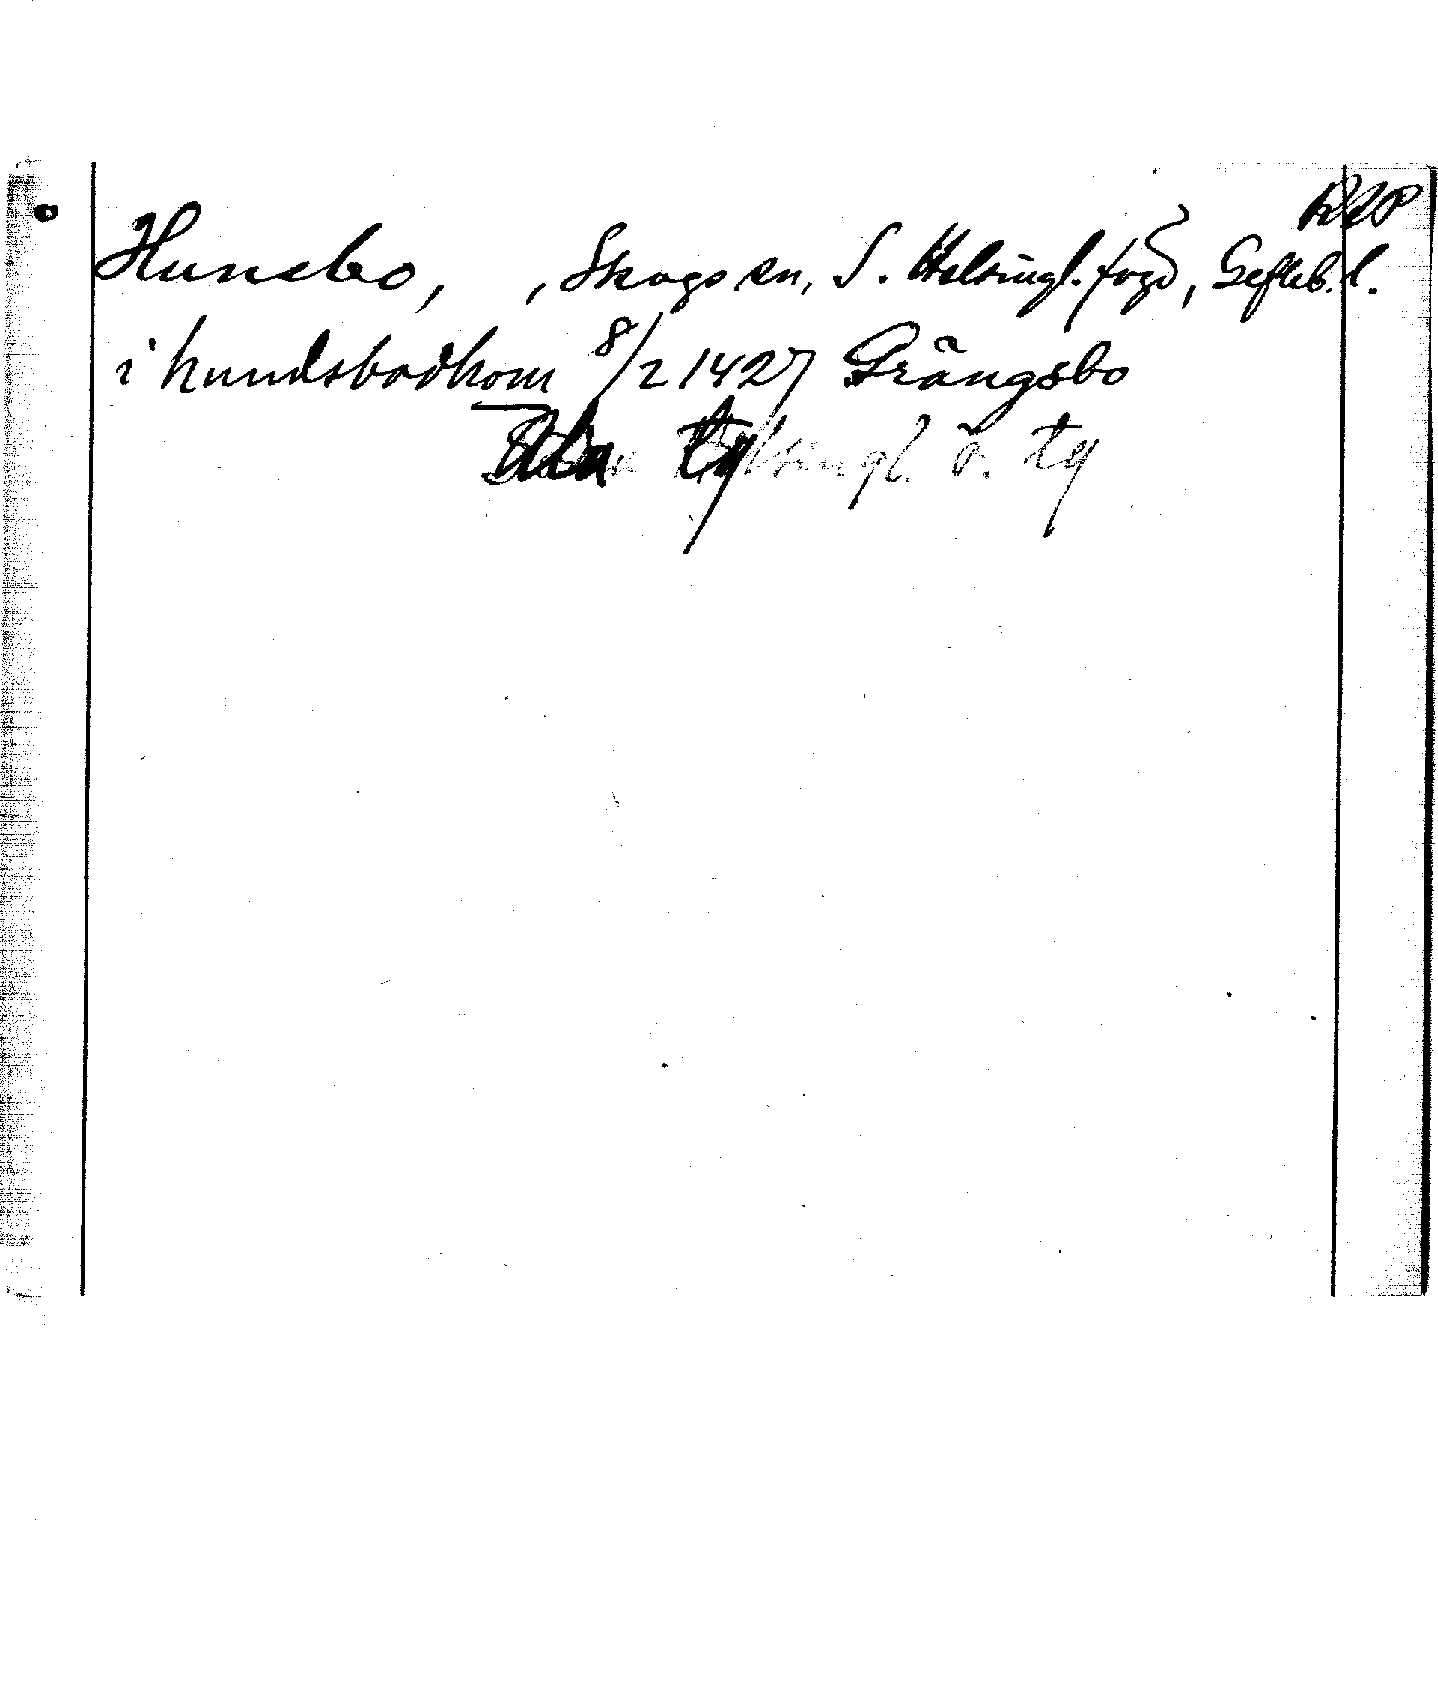 RAP
Hunsbo, , Skogs sn, S. Helsingl. fögd, Gefleb. l.
i hundsbodhom 8/2 1427 Grängsbo
Helsingl. ö. tg